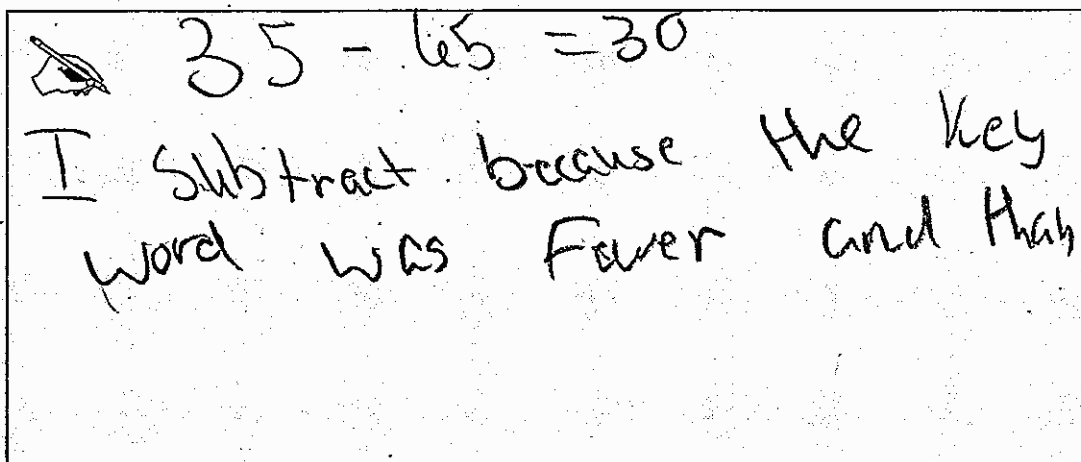 35 - 65 = 30
I subtract because the key
word was Fewer and than